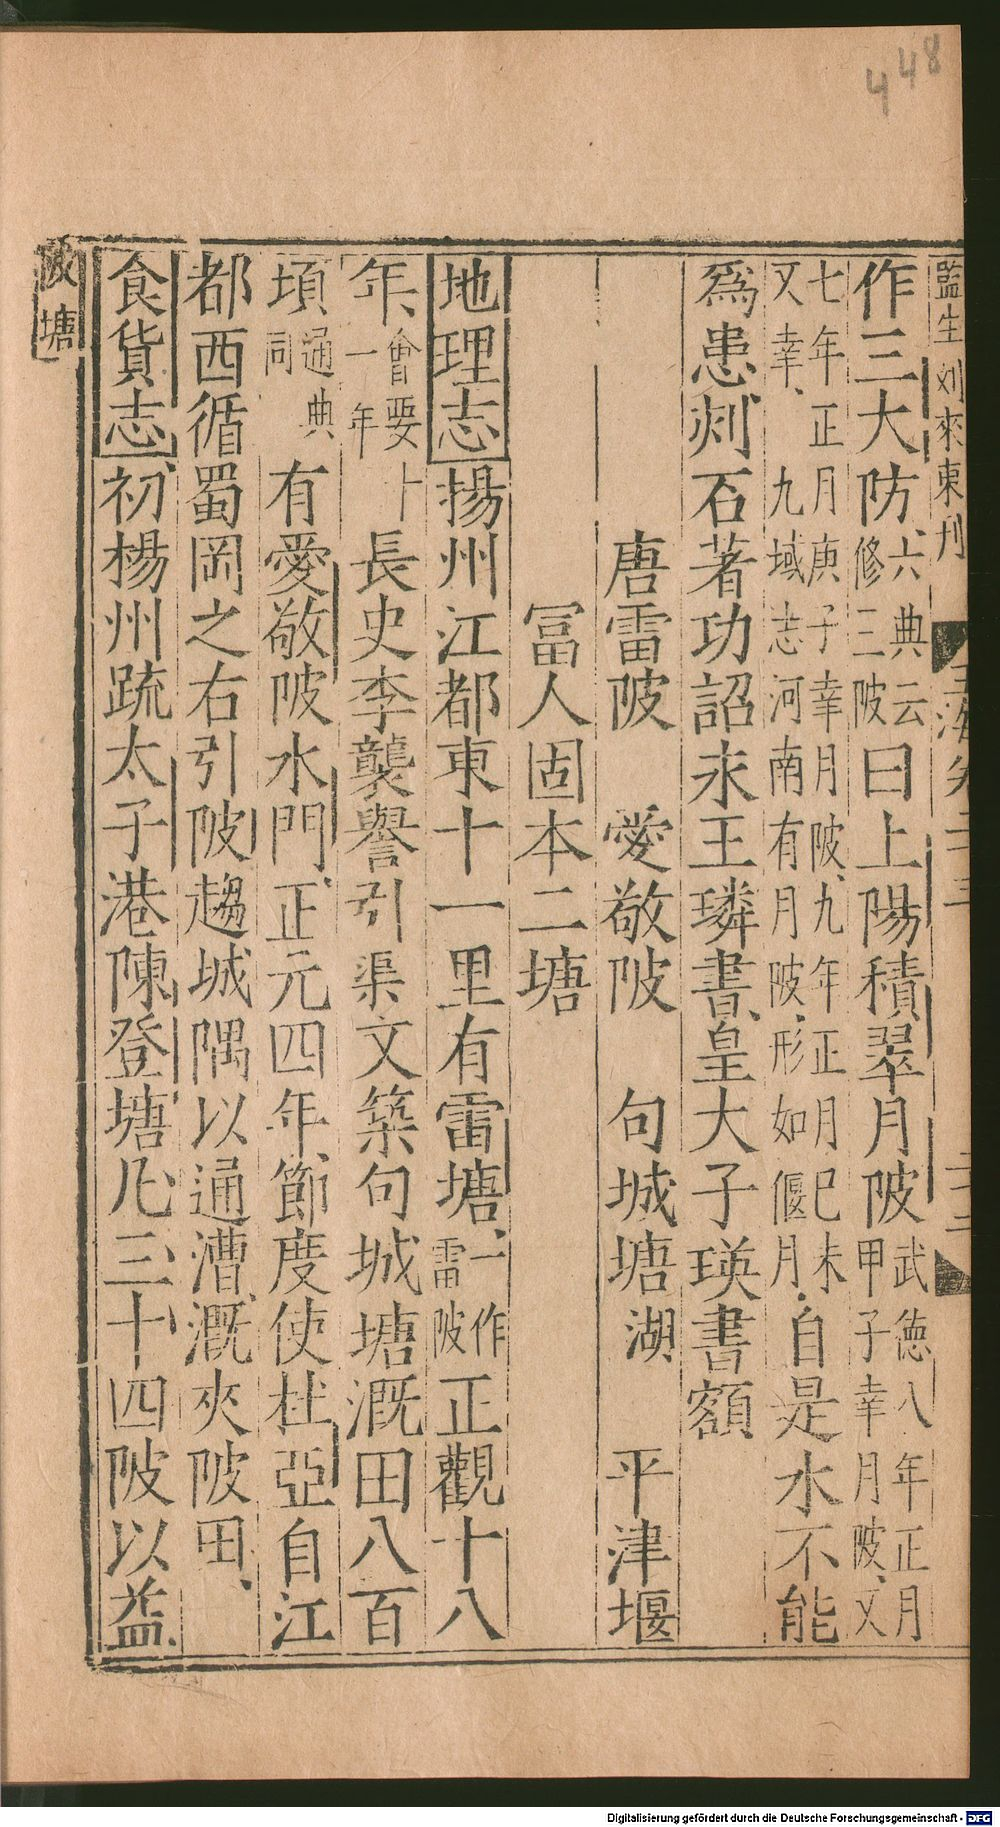 448
監生刘來東刊
玉海卷二十三 二十二
作三大防六典云修三陂曰上陽積翠月陂武德八年正月甲子幸月陂又
七年正月庚子幸月陂九年正月巳未又幸九域志河南有月陂形如偃月自是水不能
爲患刻石著功詔永王璘書皇大子瑛書額
唐雷陂 愛敬陂 句城塘湖 平津堰
冨人固本二塘
地理志揚州江都東十一里有雷塘一作雷陂正觀十八
年會要十一年長史李襲譽引渠文築句城塘溉田八百
頃通典同有愛敬陂水門正元四年節度使杜亞自江
都西循蜀岡之右引陂趨城隅以通漕溉夾陂田
食貨志初楊州䟽太子港陳登塘凡三十四陂以益
陂塘
Digitalisierung gefördert durch die Deutsche Forschungsgemeinschaft - DFG